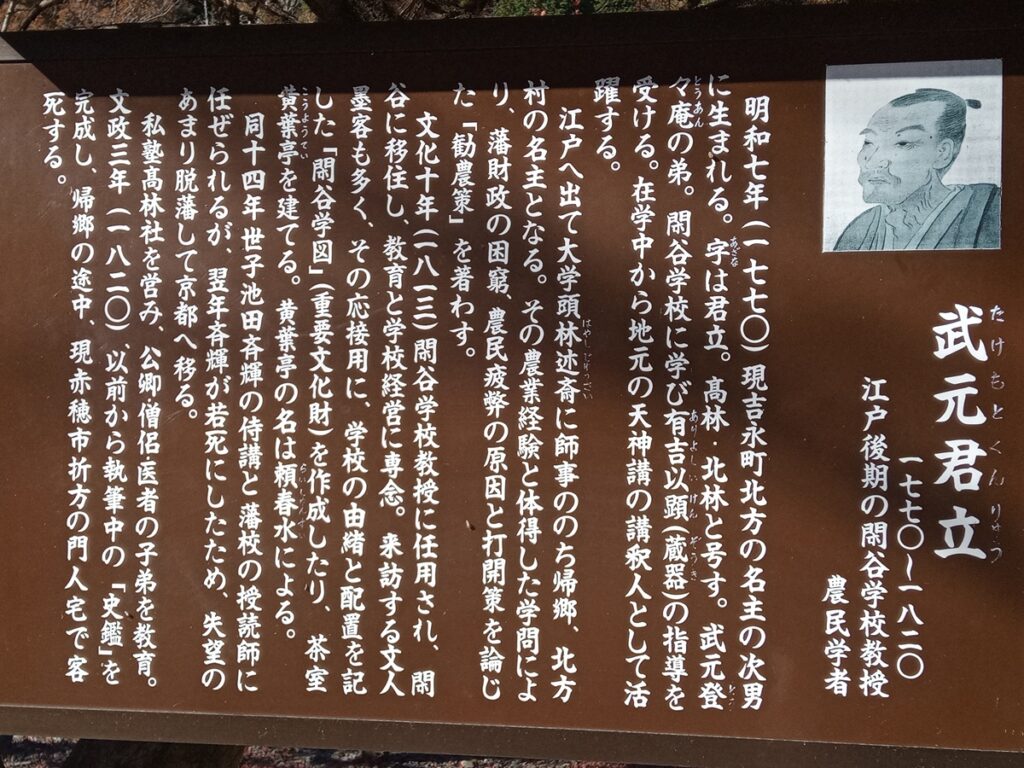 武元君立
たけもとくんりゅう
一七七〇～一八二〇
江戸後期の閑谷学校教授
農民学者
明和七年（一七七〇）現吉永町北方の名主の次男
に生まれる。字は君立。高林・北林と号す。武元登
々庵の弟。閑谷学校に学び有吉以顕（蔵器）の指導を
受ける。在学中から地元の天神講の講釈人として活
躍する。
江戸へ出て大学頭林述斎に師事ののち帰郷、北方
村の名主となる。その農業経験と体得した学問によ
り、藩財政の困窮、農民疲弊の原因と打開策を論じ
た「勧農策」を著わす。
文化十年（一八一三）閑谷学校教授に任用され、閑
谷に移住し、教育と学校経営に専念。来訪する文人
墨客も多く、その応接用に、学校の由緒と配置を記
した「閑谷学図」（重要文化財）を作成したり、茶室
黄葉亭を建てる。黄葉亭の名は頼春水による。
同十四年世子池田斉輝の侍講と藩校の授読師に
任ぜられるが、翌年斉輝が若死にしたため、失望の
あまり脱藩して京都へ移る。
私塾高林社を営み、公卿・僧侶医者の子弟を教育。
文政三年（一八二〇）、以前から執筆中の「史鑑」を
完成し、帰郷の途中、現赤穂市折方の門人宅で客
死する。